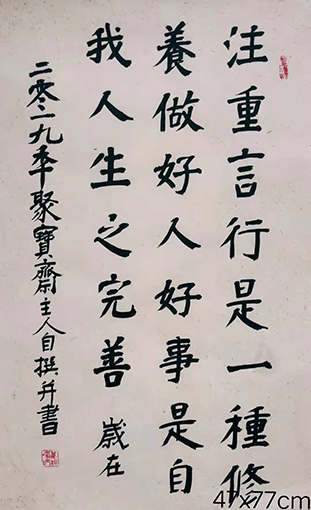 注重言行是一種修
養做好人好事是自
我人生之完善 歲在
二零一九年聚寶齋主人自撰并書
47x77cm